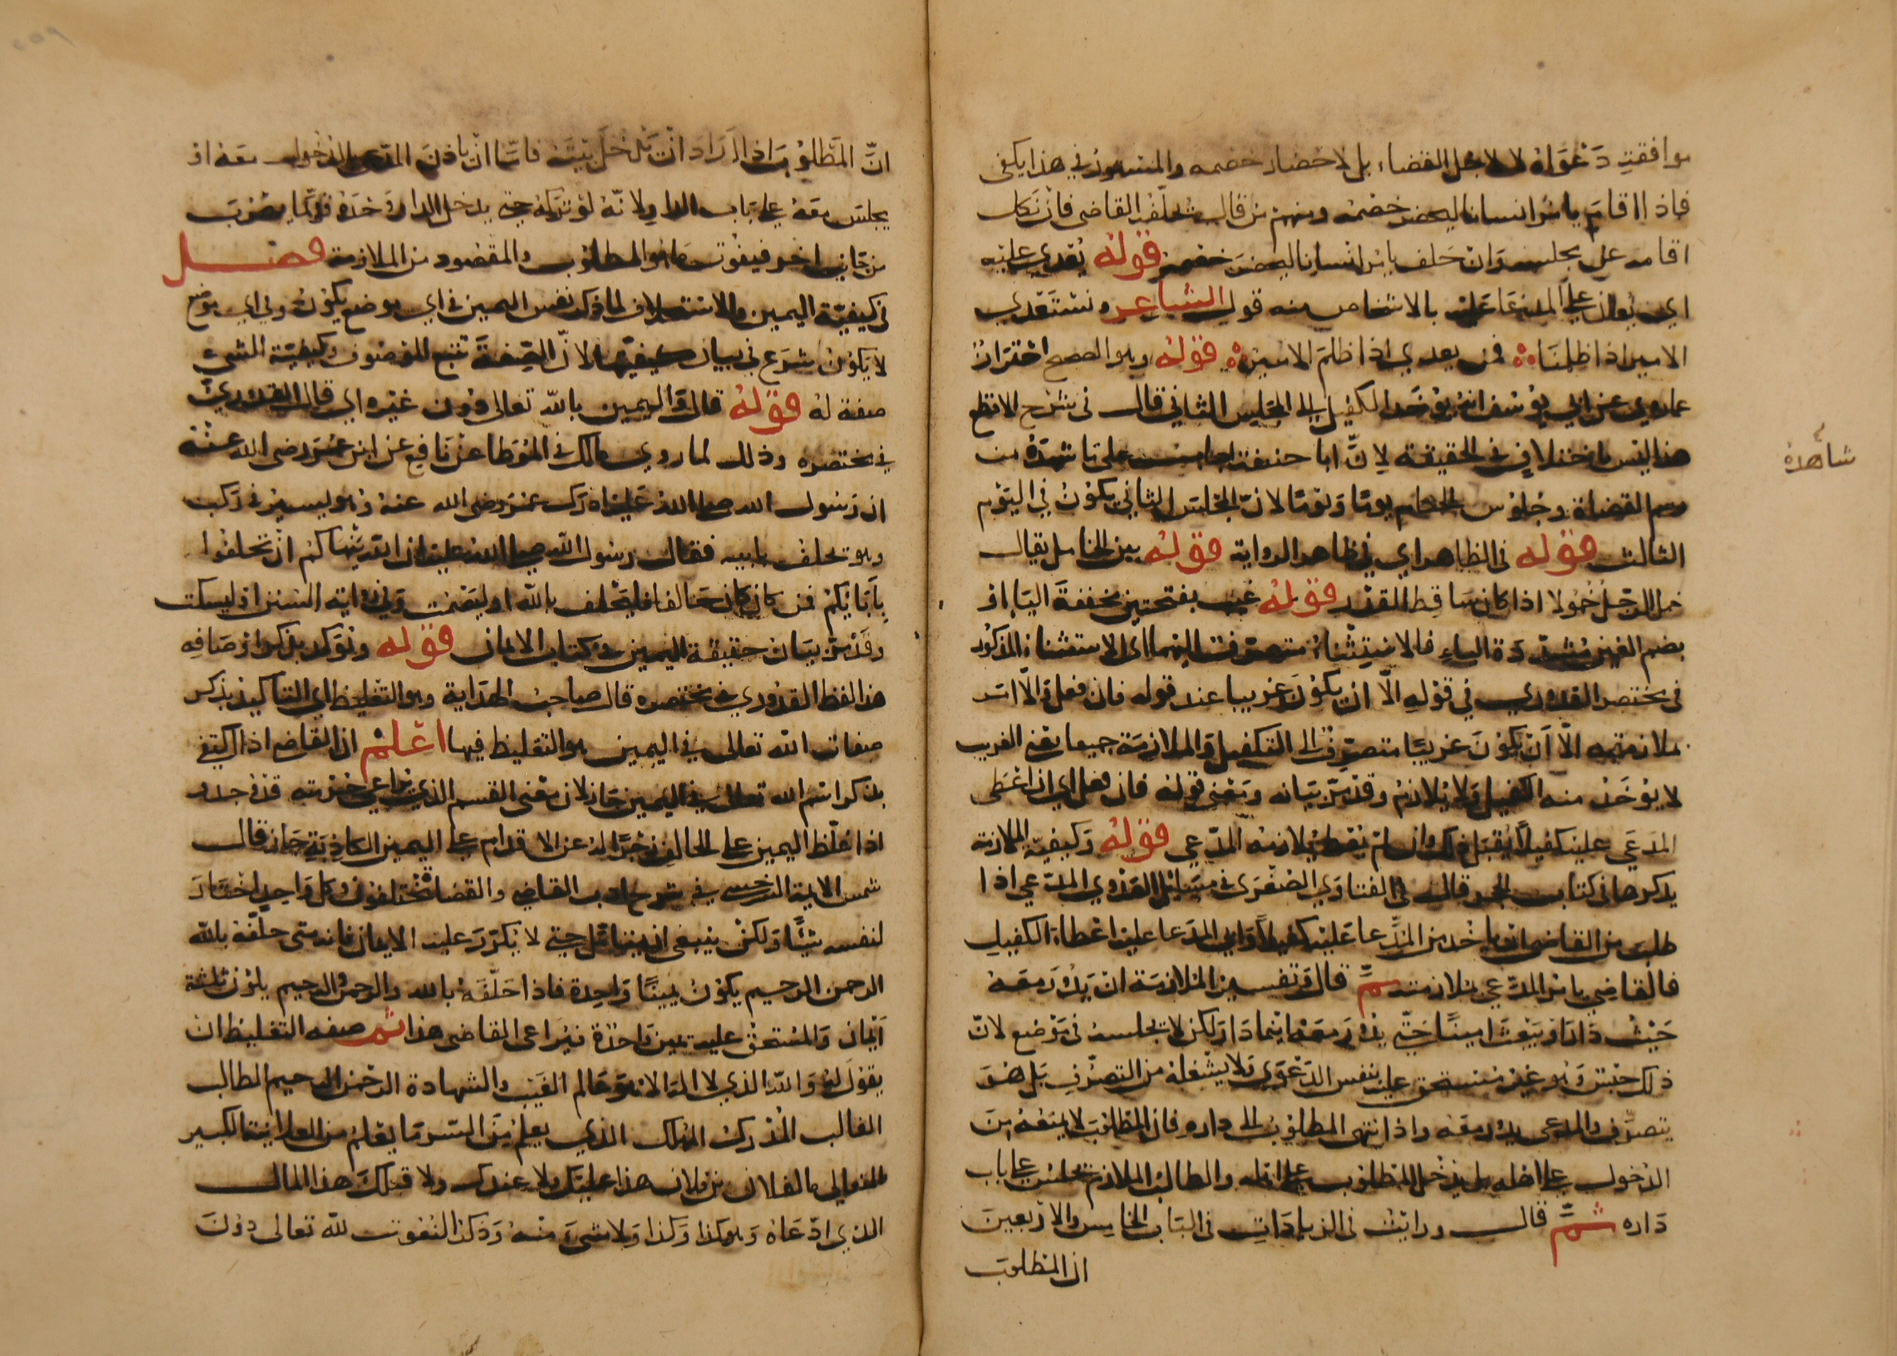 موافقت دعواه لا لاجل القضاء بل لاحضار خصمه والمستور في هذا يكفي
فاذا اقام يامر انسانا ليحضر خصمه ومنهم من قال يحلفه القاضي فان نكل
اقامه عن مجلسه وان حلف يامر انسانا ليحضر خصمه قوله يعدي عليه
اي على المدعا عليه بالاشخاص منه قول الشاعر ونستعدي
الامير اذا ظلمنا فمن يعدي اذا ظلم الامير قوله وهو الصحيح احتراز
عما روي عن ابي يوسف انه يوخذ الكفيل الى المجلس الثاني قال في شرح الاقطع
هذا ليس باختلاف في الحقيقة لان ابا حنيفة اجاب على ما شهده من
شاهده
رسم القضاة وجلوس الحكام يوما ويوما لان المجلس الثاني يكون في اليوم
الثالث قوله في الظاهر اي في ظاهر الرواية قوله بين الخامل يقال
خمل الرجل خمولا اذا كان ساقط القدر قوله غيب بفتحتين مخففة الياء او
بضم الغين مشددة الياء فالاستثناء منصرف اليهما اي الاستثناء المذكور
في مختصر القدوري في قوله الا ان يكون غريبا عند قوله فان فعل والا امر
بملازمته الا ان يكون غريبا منصرف الى التكفيل والملازمة جميعا يعني الغريب
لا يوخذ منه الكفيل ولا يلازم وقد مر بيانه ومعنى قوله فان فعل اي ان اعطى
المدعى عليه كفيلا يقبل ذلك وان لم يعط يلازمه المدعي قوله وكيفية الملازمة
يذكرها في كتاب الحجر قال في الفتاوي الصغرى في مسائل العدوي المدعي اذا
طلب من القاضي ان ياخذ من المدعا عليه كفيلا وابى المدعا عليه اعطاء الكفيل
فالقاضي يامر المدعي بملازمته ثم قال وتفسير الملازمة ان يدور معه
حيث دار او يبعث امينا حتى يدور معه اينما دار ولكن لا يجلسه في موضع لان
ذلك حبس وهو غير مستحق عليه بنفس الدعوى ولا يشغله من التصرف بل هو
يتصرف والمدعي يدور معه واذا انتهى المطلوب الى داره فان المطلوب لا يمنعه من
الدخول على اهله بل يدخل المطلوب على اهله والطالب الملازم يجلس على باب
داره ثم قال ورايت في الزيادات في الباب الخامس والاربعين
ان المطلوب
ان المطلوب اذا اراد ان يدخل بيته فاما ان ياذن المدعي للدخول معه او
يجلس معه على باب الدار لانه لو تركه حتى يدخل الدار وحده فربما يهرب
من جانب اخر فيفوت ما هو المطلوب والمقصود من الملازمة فصل
في كيفية اليمين والاستحلاف لما ذكر نفس اليمين في اي موضع يكون وفي اي موضع
لا يكون شرع في بيان كيفيتها لان الصفة تتبع الموصوف وكيفية الشيء
صفة له قوله قال واليمين بالله تعالى دون غيره اي قال القدوري
في مختصره وذلك لما روى مالك في الموطا عن نافع عن ابن عمر رضي الله عنه
ان رسول الله صلى الله عليه ادرك عمر رضي الله عنه وهو يسير في ركب
وهو يحلف بابيه فقال رسول الله صلى الله عليه ان الله ينهاكم ان تحلفوا
بابائكم فمن كان حالفا فليحلف بالله او ليصمت وفي رواية السنن او ليسكت
وقد مر بيان حقيقة اليمين في كتاب الايمان قوله وتوكد بذكر اوصافه
هذا لفظ القدوري في مختصره قال صاحب الهداية وهو التغليظ اي التاكيد بذكر
صفات الله تعالى في اليمين هو التغليظ فيها اعلم ان القاضي اذا اكتفى
بذكر اسم الله تعالى في اليمين جاز لان معنى القسم الذي حرمته قد وجد و
اذا غلظ اليمين على الحالف زجرا له عن الاقدام على اليمين الكاذبة جاز قال
شمس الايمة السرخسي في شرح ادب القاضي والقضاة مختلفون وكل واحد اختار
لنفسه شيئا ولكن ينبغي ان يتامل حتى لا يكرر عليه الايمان فانه متى حلفه بالله
الرحمن الرحيم يكون يمينا واحدة فاذا حلفه بالله والرحمن والرحيم يكون ثلثة
ايمان والمستحق عليه يمين واحدة فيراعي القاضي هذا ثم صفه التغليظ ان
يقول له والله الذي لا اله الا هو عالم الغيب والشهادة الرحمن الرحيم الطالب
الغالب المدرك المهلك الذي يعلم من السر ما يعلم من العلانية الكبير
المتعالي ما لفلان بن فلان هذا عليك ولا عندك ولا قبلك هذا المال
الذي ادعاه وهو كذا وكذا ولا شيء منه وذكر النعوت لله تعالى دون